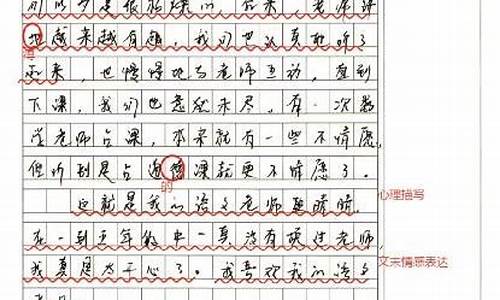 也越来越有趣，我们也认真地听了
得
起来，也慢慢地与老师互动，直到
下课，我们也意犹未尽，有一次数
学老师占课，本来就有一些不情愿，
但听到是占语课就更不情愿了。
的
心理描写
这就是我们语文老师
在一到五年级中一直没有换过老师，
文末情意表达
我真是太开心了。我喜欢我的语文